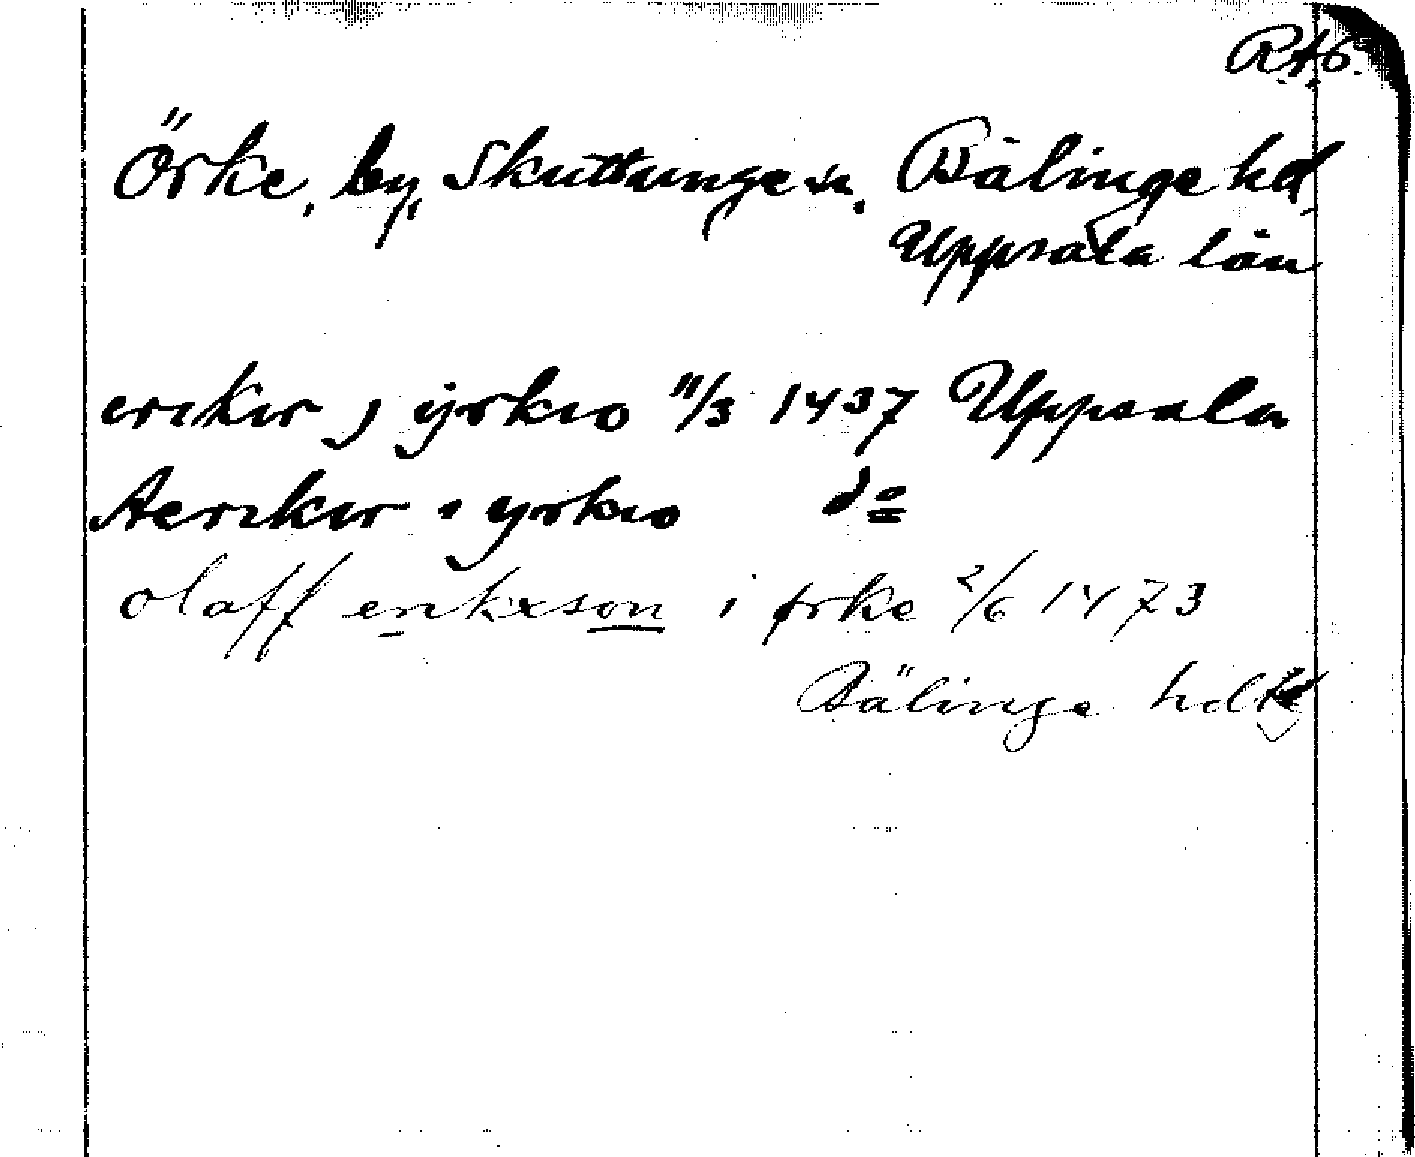 RAö.
Örke, by, Skuttunge sn. Bälinge hd,
Uppsala län
erickir j ÿrkio 11/3 1437 Uppsala
Aerickir i yrkio do
olaff erikxson i ørke 2/6 1473
Bälinge hd